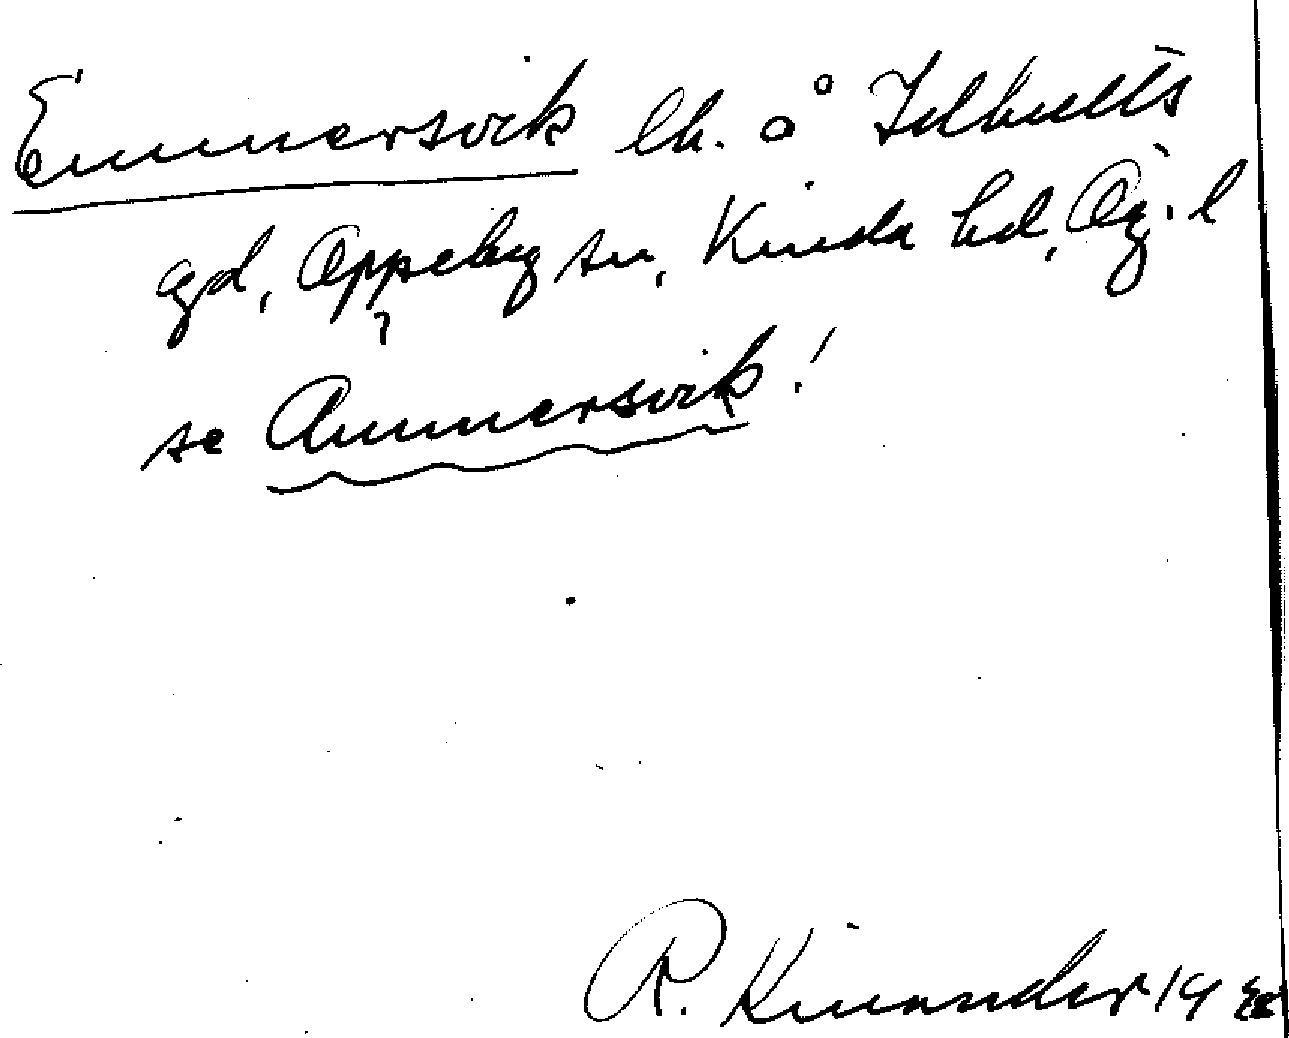 Emmersvik lh. å Idhults
gd, Oppeby sn, Kinda hd, Ög. l
?
se Ammersvik!
R. Kinander 19